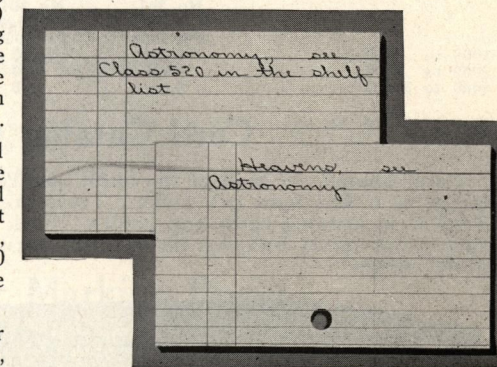 Astronomy, see
Class 520 in the shelf
list
Heavens, see
Astronomy